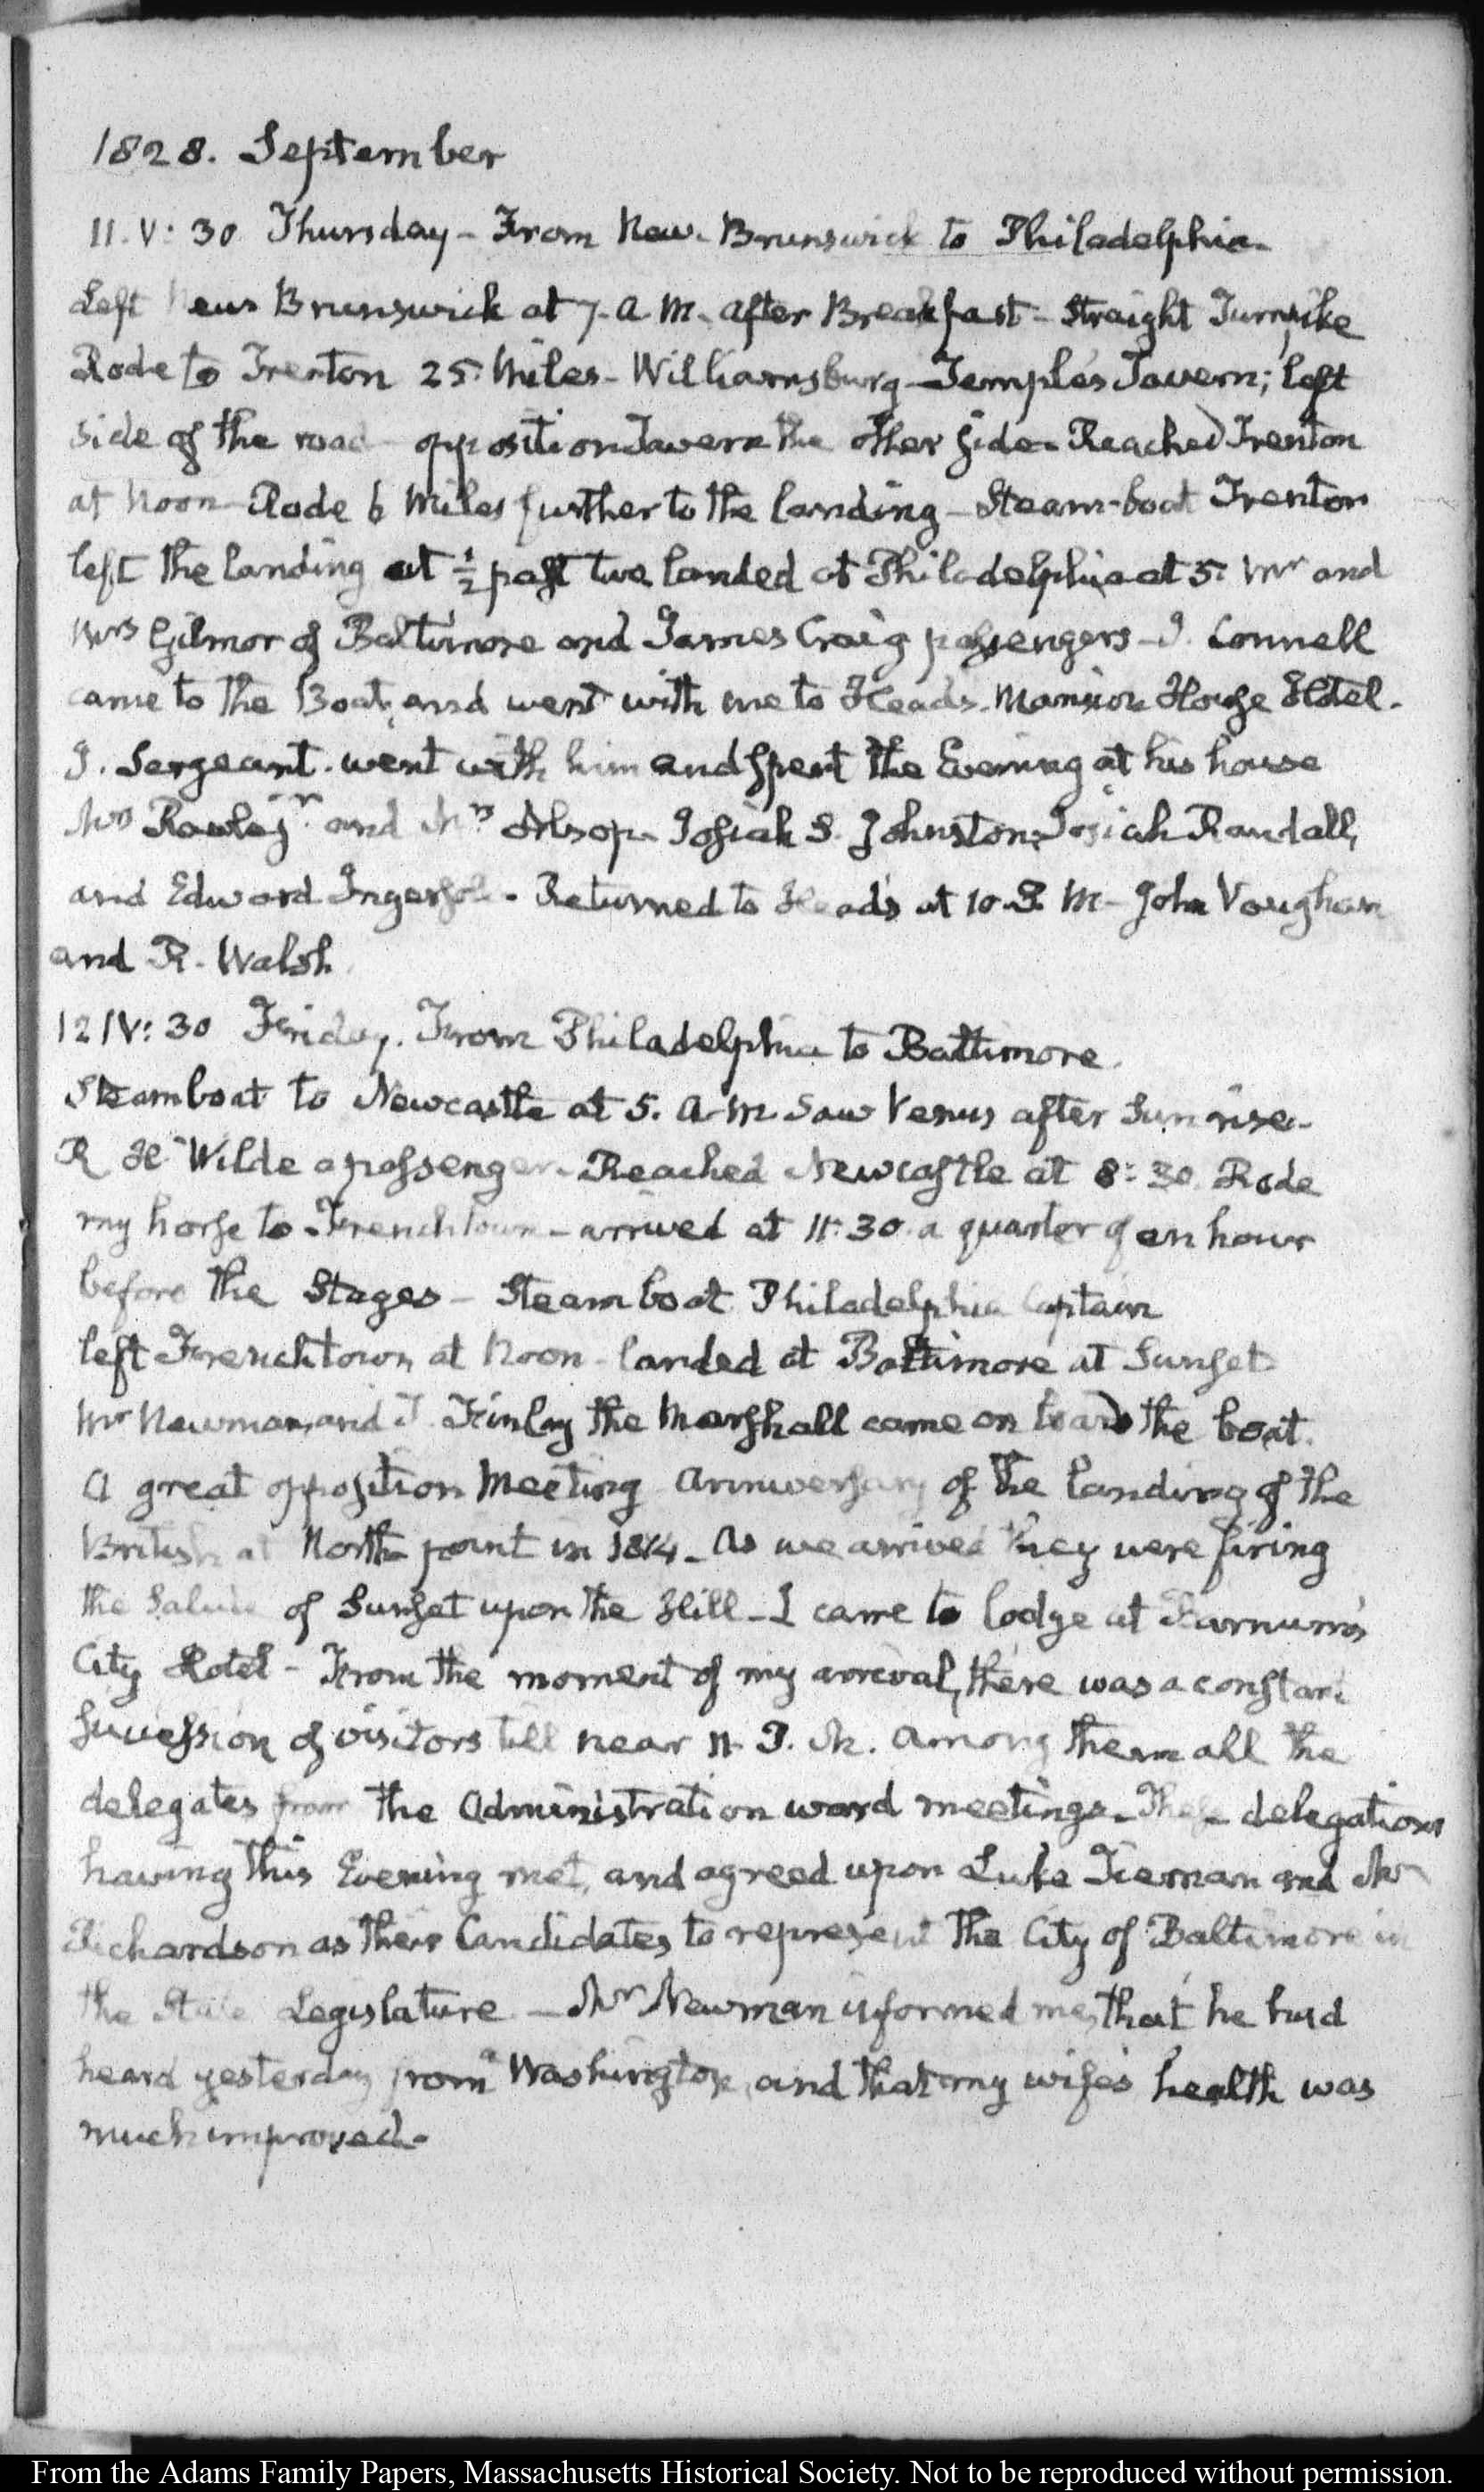 1828. September
11. V: 30 Thursday - From New-Brunswick to Philadelphia-
Left New Brunswick at 7. A.M. after Breakfast - Straight Turnpike
Rode to Trenton 25. Miles - Williamsburg - Temple's Tavern; left
side of the road - opposition Tavern the other side. Reached Trenton
at Noon - Rode 6 Miles further to the landing - Steam-boat Trenton
left the landing at ½ past two landed at Philadelphia at 5. Mr and
Mrs Gilmor of Baltimore and James Craig passengers - J. Connell
came to the Boat, and went with me to Heads. Mansion House Hotel.
J. Sergeant. went with him and spent the Evening at his house
and Mr Alsop - Josiah S. Johnston, Josiah Randall,
and Edward Ingersoll - Returned to Head's at 10. P. M - John Vaughan
and R. Walsh
12 IV: 30 Friday. From Philadelphia to Baltimore.
Steamboat to Newcastle at 5. A.M. Saw Venus after Sunrise.
R H Wilde a passenger - Reached Newcastle at 8:30. Rode
my horse to Frenchtown - arrived at 11:30. a quarter of an hour
before the Stages - Steam boat Philadelphia Captain
left Frenchtown at Noon - landed at Baltimore at Sunset
Mr Newman, and T. Finlay the Marshall came on board the boat.
A great opposition Meeting Anniversary of the landing of the
British at North point in 1814 - As we arrived they were firing
the Salute of Sunset upon the Hill - I came to lodge at Barnum's
City Hotel - From the moment of my arrival, there was a constant
succession of visitors till near 11. P. M. Among them all the
delegates from the Administration ward meetings - These delegations
having this Evening met, and agreed upon Luke Tiernan and Mr
Richardson as their Candidates to represent the City of Baltimore in
the State Legislature - Mr Newman informed me, that he had
heard yesterday from Washington, and that my wife's health was
much improved.
From the Adams Family Papers, Massachusetts Historical Society. Not to be reproduced without permission.